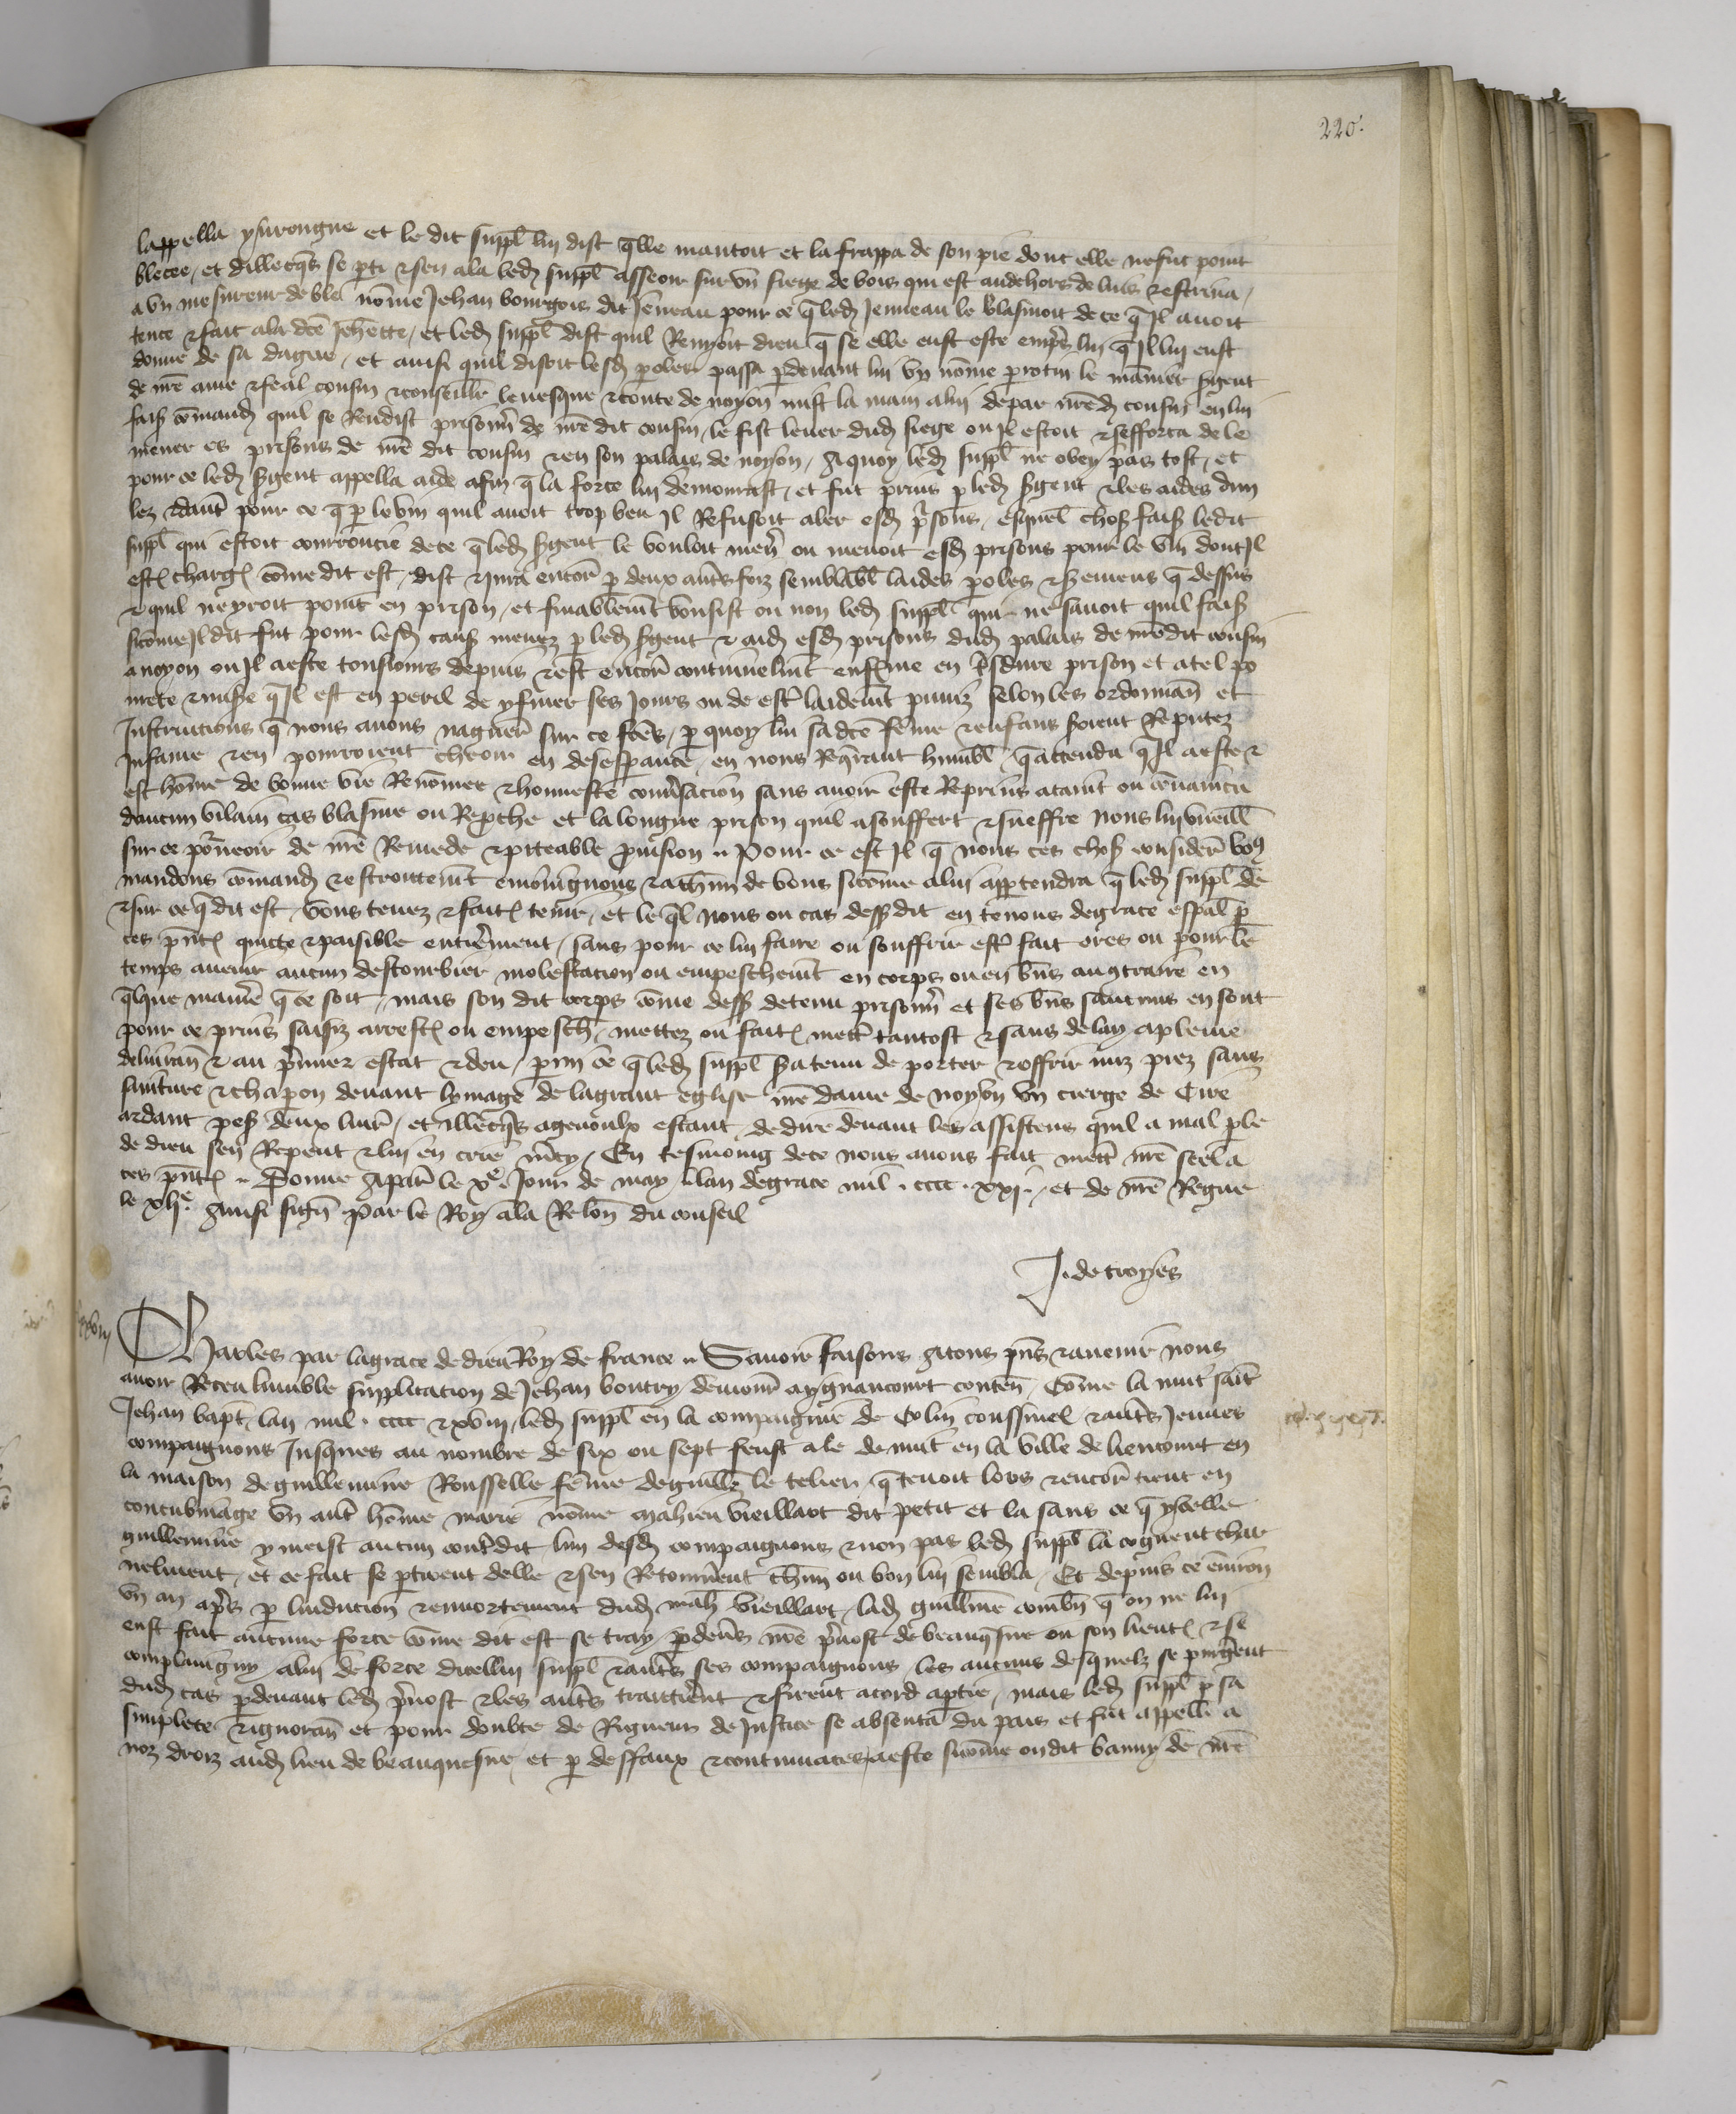 220.
lappella yurongne et le dit suppl lui dist qlle mantoit et la frappa de son pie dont elle ne fut point
blecee, et dillecqs se pti et sen ala ledᵗ suppl asseoir sur un siege de bois qui est audehors de luis et estriva,
a un mesureur de ble nõme Jehan bourgois dit Jeneau pour ce q ledᵗ Jeneau le blasmoit de ce q Il avoit
tence et fait ala dce Jehẽtte, et ledᵗ suppl dist quil Renyoit dieu q se elle eust este empres lui q Il lui eust
donne de sa dague, et ainsi quil disoit lesdᵗ poles passa pdevant lui un nõme protin le mannier sgent
de nrẽ ame et feal cousin et conseillr levesque et conte de noyon mist la main alui depar nredᵗ cousin en lui
fais cõmandᵗ quil se Rendist prisonñ de nrẽ dit cousin, le fist lever dudᵗ siege ou Il estoit et sefforca de le
mener es prisons de nrẽ dit cousin et en son palais de noyon, A quoy ledᵗ suppl ne obey pas tost, et
pour ce ledᵗ sgent appella aide afin q la force lui demourast, et fut prins p ledᵗ sgent et les aides dun
lez et daut pour ce q p le vin quil avoit trop beu Il Refusoit aler esdᵗ psons, esquel chos fais ledit
suppl qui estoit courroucie de ce q ledᵗ sgent le vouloit meñ ou menoit esdᵗ prisons pour le vin dont Il
est charg cõme dit est, dist et Jura encor p deux auts foiz semblabl laides poles et semens q dessus
et quil nyroit point en prison, et finablemt voulsist ou non ledᵗ suppl qui ne savoit quil fais
sicõme Il dit fut pour lesdᵗ caus menez p ledᵗ sgent et aidᵗ esdᵗ prisons dudᵗ palais de nredit cousin
a noyon ou Il a este tousiours depuis et est encor continuelmt enfme en tsdure prison et a tel po
vrete et mise q Il est en peril de y finer ses Jours ou de est laidemt puniz selon les ordonnañ et
Instructions q nous avons naguer sur ce fces, p quoy lui sadce feme et enfans soient Reputez
Infame et en pourroient cheoir en desespance, en nous Reqrant humbl, q attendu q Il a este et
est hõme de bonne vie Renõmee et honneste convsacion sans avoir este Reprins ataint ou cõvaincu
daucun vilain cas blasme ou Reprche et la longue prison quil a souffert et sueffre Nous lui vueill
sur ce pourveoir de nrẽ Remede et piteable pvision .. Pour ce est Il q nous ces chos considerẽ vous
mandons cõmandᵗ et estroictemt enioingnons et a chñn de vous sicõme alui appartendra q ledᵗ suppl de
et sur ce q dit est, vous tenez et fait tenir, et le ql nous ou cas dessdit en tenons de grace espal p
ces pnt quicte et paisible entieremnt, sans pour ce lui faire ou souffrir est fait ores ou pour le
temps avenir aucun destourbier molestacion ou empeschemt en corps ou en bns au contraire en
qlque maniere q ce soit, mais son dit corps cõme dess detenu prisonñ et ses bns saucuns en sont
pour ce prins saisiz arrest ou empesch, mettez ou fait mett tantost et sans delay a pleine
delivrañ et au pmier estat et deu, pmi ce q ledᵗ suppl sa tenu de porter et offrir nuz piez sans
sainture et chapon devant lymage de la grant eglise nrẽ dame de noyon un cierge de Cire
ardant pes deux livr, et illecqs agenoulx estant de dire devant les assistens quil a mal ple
de dieu sen Repent et lui en crie mcy, En tesmoing de ce nous avons fait mett nrẽ seel a
ces pnt .. Donne A par le xᵉ Jour de may lan de grace mil . cccc . xxj., et de nrẽ Regne
le xlj.ᵉ Ainsi signe Par le Roy ala Relon du conseil
J. de troyes
Charles par la grace de dieu Roy de france .. Savoir faisons A tous pns et avenir nous
avoir Receu humble supplicacion de Jehan boutry, demour a ygnaucourt conten, Cõme la nuit saĩt
Jehan bapt, lan mil . cccc et xviij, ledᵗ suppl en la compaignie de Colin coussinel et auts Jeunes
compaignons Jusques au nombre de six ou sept feust ale de nuit en la ville de hencourt en
la maison de guillemine Rousselle feme de guille le telier, q tenoit lors et encor tient en
concubinage un aut hõme marie nõme mahieu vieillart dit petit et la sans ce q ycelle
guillemine y meist aucun contdit, lun desdᵗ compaignons et non pas ledᵗ suppl la cogneut char
nelment, et ce fait se ptirent delle et sen Retournerent chñn ou bon lui sembla, Et depuis ce environ
un an aprs p linducion et ennortement dudᵗ mah vieillart, ladᵗ guillme combñ q on ne lui
eust fait aucune force cõme dit est se tray pdevs nrẽ pvost de beauqsne ou son lieut et se
complaingny alui de force dicellui suppl et auts ses compaignons, les aucuns desquelz se purgerent
dudᵗ cas pdevant ledᵗ pvost et les auts traittierent et firent acord a ptie, mais ledᵗ suppl p sa
simplete et ignorañ et pour doubte de Rigueur de Justice se absenta du pais et fut appelle a
noz droiz audᵗ lieu de beauquesne, et p deffaux et continuaces a este sicõme on dit banny de nrẽ